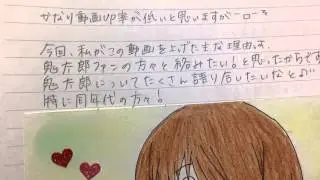 かなり動画up率が低いと思いますがーローキ
今回、私がこの動画を上げた主な理由は、
鬼太郎ファンの方々と絡みたい!と思ったからです
鬼太郎についてたくさん語り合いしたいなと♪
特に同年代の方々!